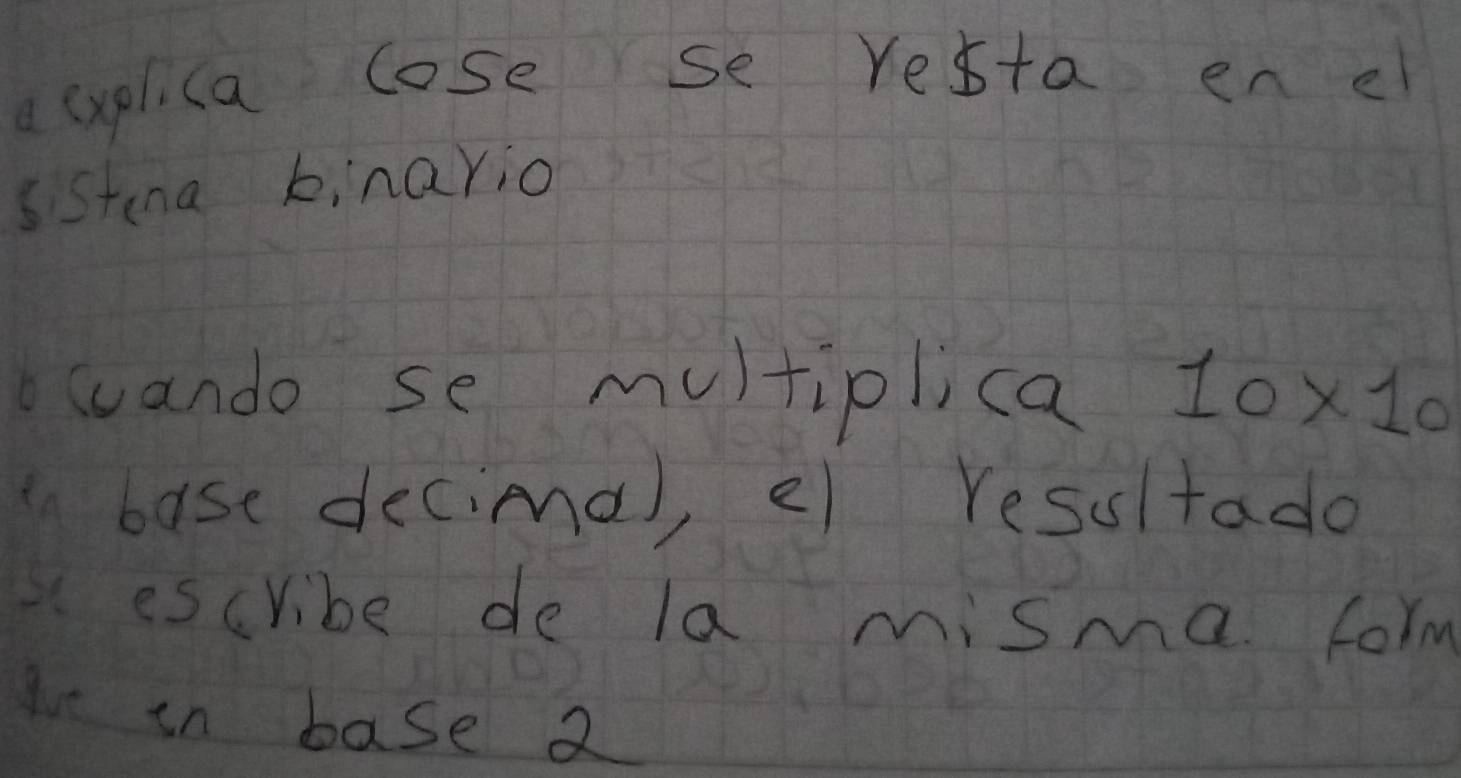 a explica cose se resta en el
sistena binario
b Cuando se multiplica 10x10
en base decimal, el resultado
se escribe de la misma form
que en base 2